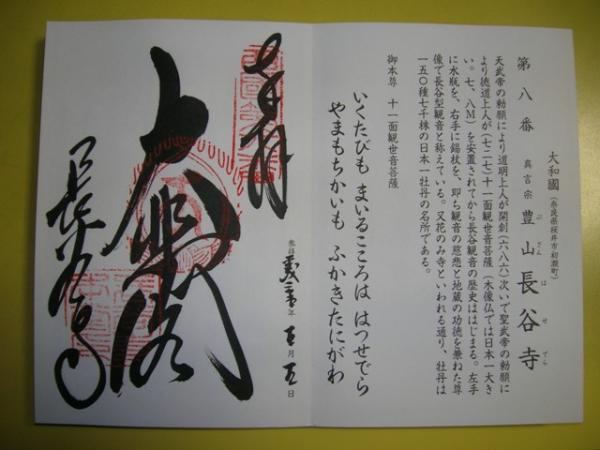 第八番
大和國（奈良県桜井市初瀬町）
真言宗 豊山 長谷寺
ぶざん はせでら
天武帝の勅願により道明上人が開創（六八六）次いで聖武帝の勅願に
より徳道上人が（七二七）十一面観世音菩薩（木像仏では日本一大き
い。七、八M）を安置されてから長谷観音の歴史ははじまる。左手
に水瓶を、右手に錫杖を、即ち観音の慈悲と地蔵の功徳を兼ねた尊
像で長谷型観音と称えている。又花のみ寺といわれる通り、牡丹は
一五〇種七千株の日本一牡丹の名所である。
御本尊 十一面観世音菩薩
いくたびも まいるこころは はつせでら
やまもちかいも ふかきたにがわ
奉拝
大悲閣
長谷寺
年 月 五日